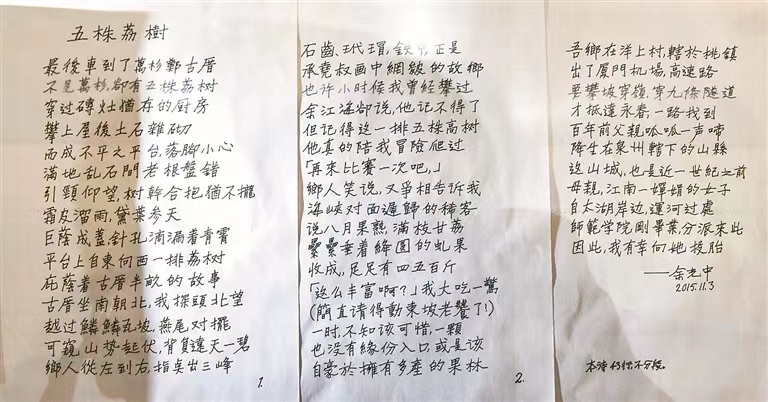 五株荔樹
最後車到了萬杉鄭古厝
不見萬杉,卻有五株荔樹
穿过磚灶猶存的厨房
攀上屋後土石雜砌
而成,不平之平台,落脚小心
滿地乱石間老根盤錯
引頸仰望,树幹合抱猶不攏
霜皮溜雨,黛葉參天
巨蔭成蓋,針孔滴漏着青霄
平台上自東向西一排荔树
庇蔭着古厝半畝的故事
古厝坐南朝北,我探頭北望
越过鱗鱗瓦坡,燕尾对擺
可窺山势起伏,背負遠天一碧
鄉人從左到右,指点出三峰
1.
石齒、玳瑁,鉄甲,正是
承堯叔画中綢皴的故鄉
也许小时候我曾經攀过
余江海卻说,他記不得了
但記得這一排五株高树
他真的陪我冒險爬过
「再來比賽一次吧,」
鄉人笑说,又爭相告诉我
海峽对面遲歸的稀客
说八月果熟,滿枝甘荔
纍纍垂着絳圓的虬果
收成,足足有四五百斤
「這么丰富啊?」我大吃一驚
(簡直请得動東坡老饕了!)
一时,不知该可惜,一顆
也没有緣份入口,或是该
自豪於擁有多產的果林
2.
吾鄉在洋上村,轄於桃鎮
出了厦门机場,高速路
要攀坡穿嶺,穿九條隧道
才抵達永春,一路找到
百年前父親呱呱一声啼
降生在泉州轄下的山縣
這山城,也是近一世紀之前
母親,江南一嬋娟的女子
自太湖岸边,運河过處
師範学院剛畢業,分派來此
因此,我有幸向她投胎
——余光中
2015.11.3
本诗43行,不分段。